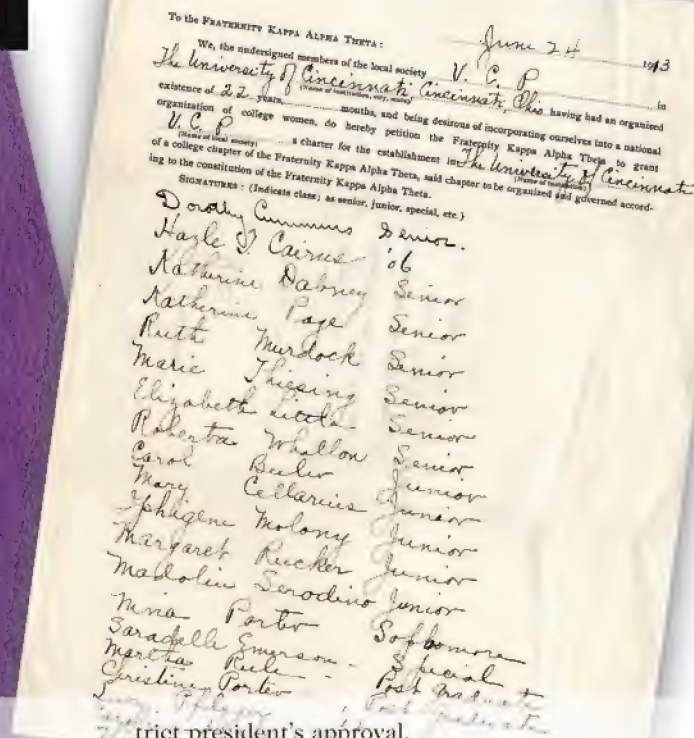 To the FRATERNITY KAPPA ALPHA THETA:
June 24 1913
We, the undersigned members of the local society V. C. P in
The University of Cincinnati Cincinnati, Ohio having had an organized
(Name of institution, city, state)
existence of 22 years, months, and being desirous of incorporating ourselves into a national
organization of college women, do hereby petition the Fraternity Kappa Alpha Theta to grant
V. C. P a charter for the establishment in The University of Cincinnati
(Name of local society) (Name of institution)
of a college chapter of the Fraternity Kappa Alpha Theta, said chapter to be organized and governed accord-
ing to the constitution of the Fraternity Kappa Alpha Theta.
SIGNATURES: (Indicate class; as senior, junior, special, etc.)
Dorothy Cummins Senior.
Hazle Cairns '06
Katherine Dabney Senior
Katherine Page Senior
Ruth Murdock Senior
Marie Thiesing Senior
Elizabeth Little Senior
Roberta Whallon Senior
Carol Beeler Junior
Mary Cellarius Junior
Iphigene Molony Junior
Margaret Rucker Junior
Madolin Serodino Junior
Nina Porter Sophomore
Saradelle Emerson - Special
Martha Post Graduate
Christine Porter Post Graduate
trict president's approval.